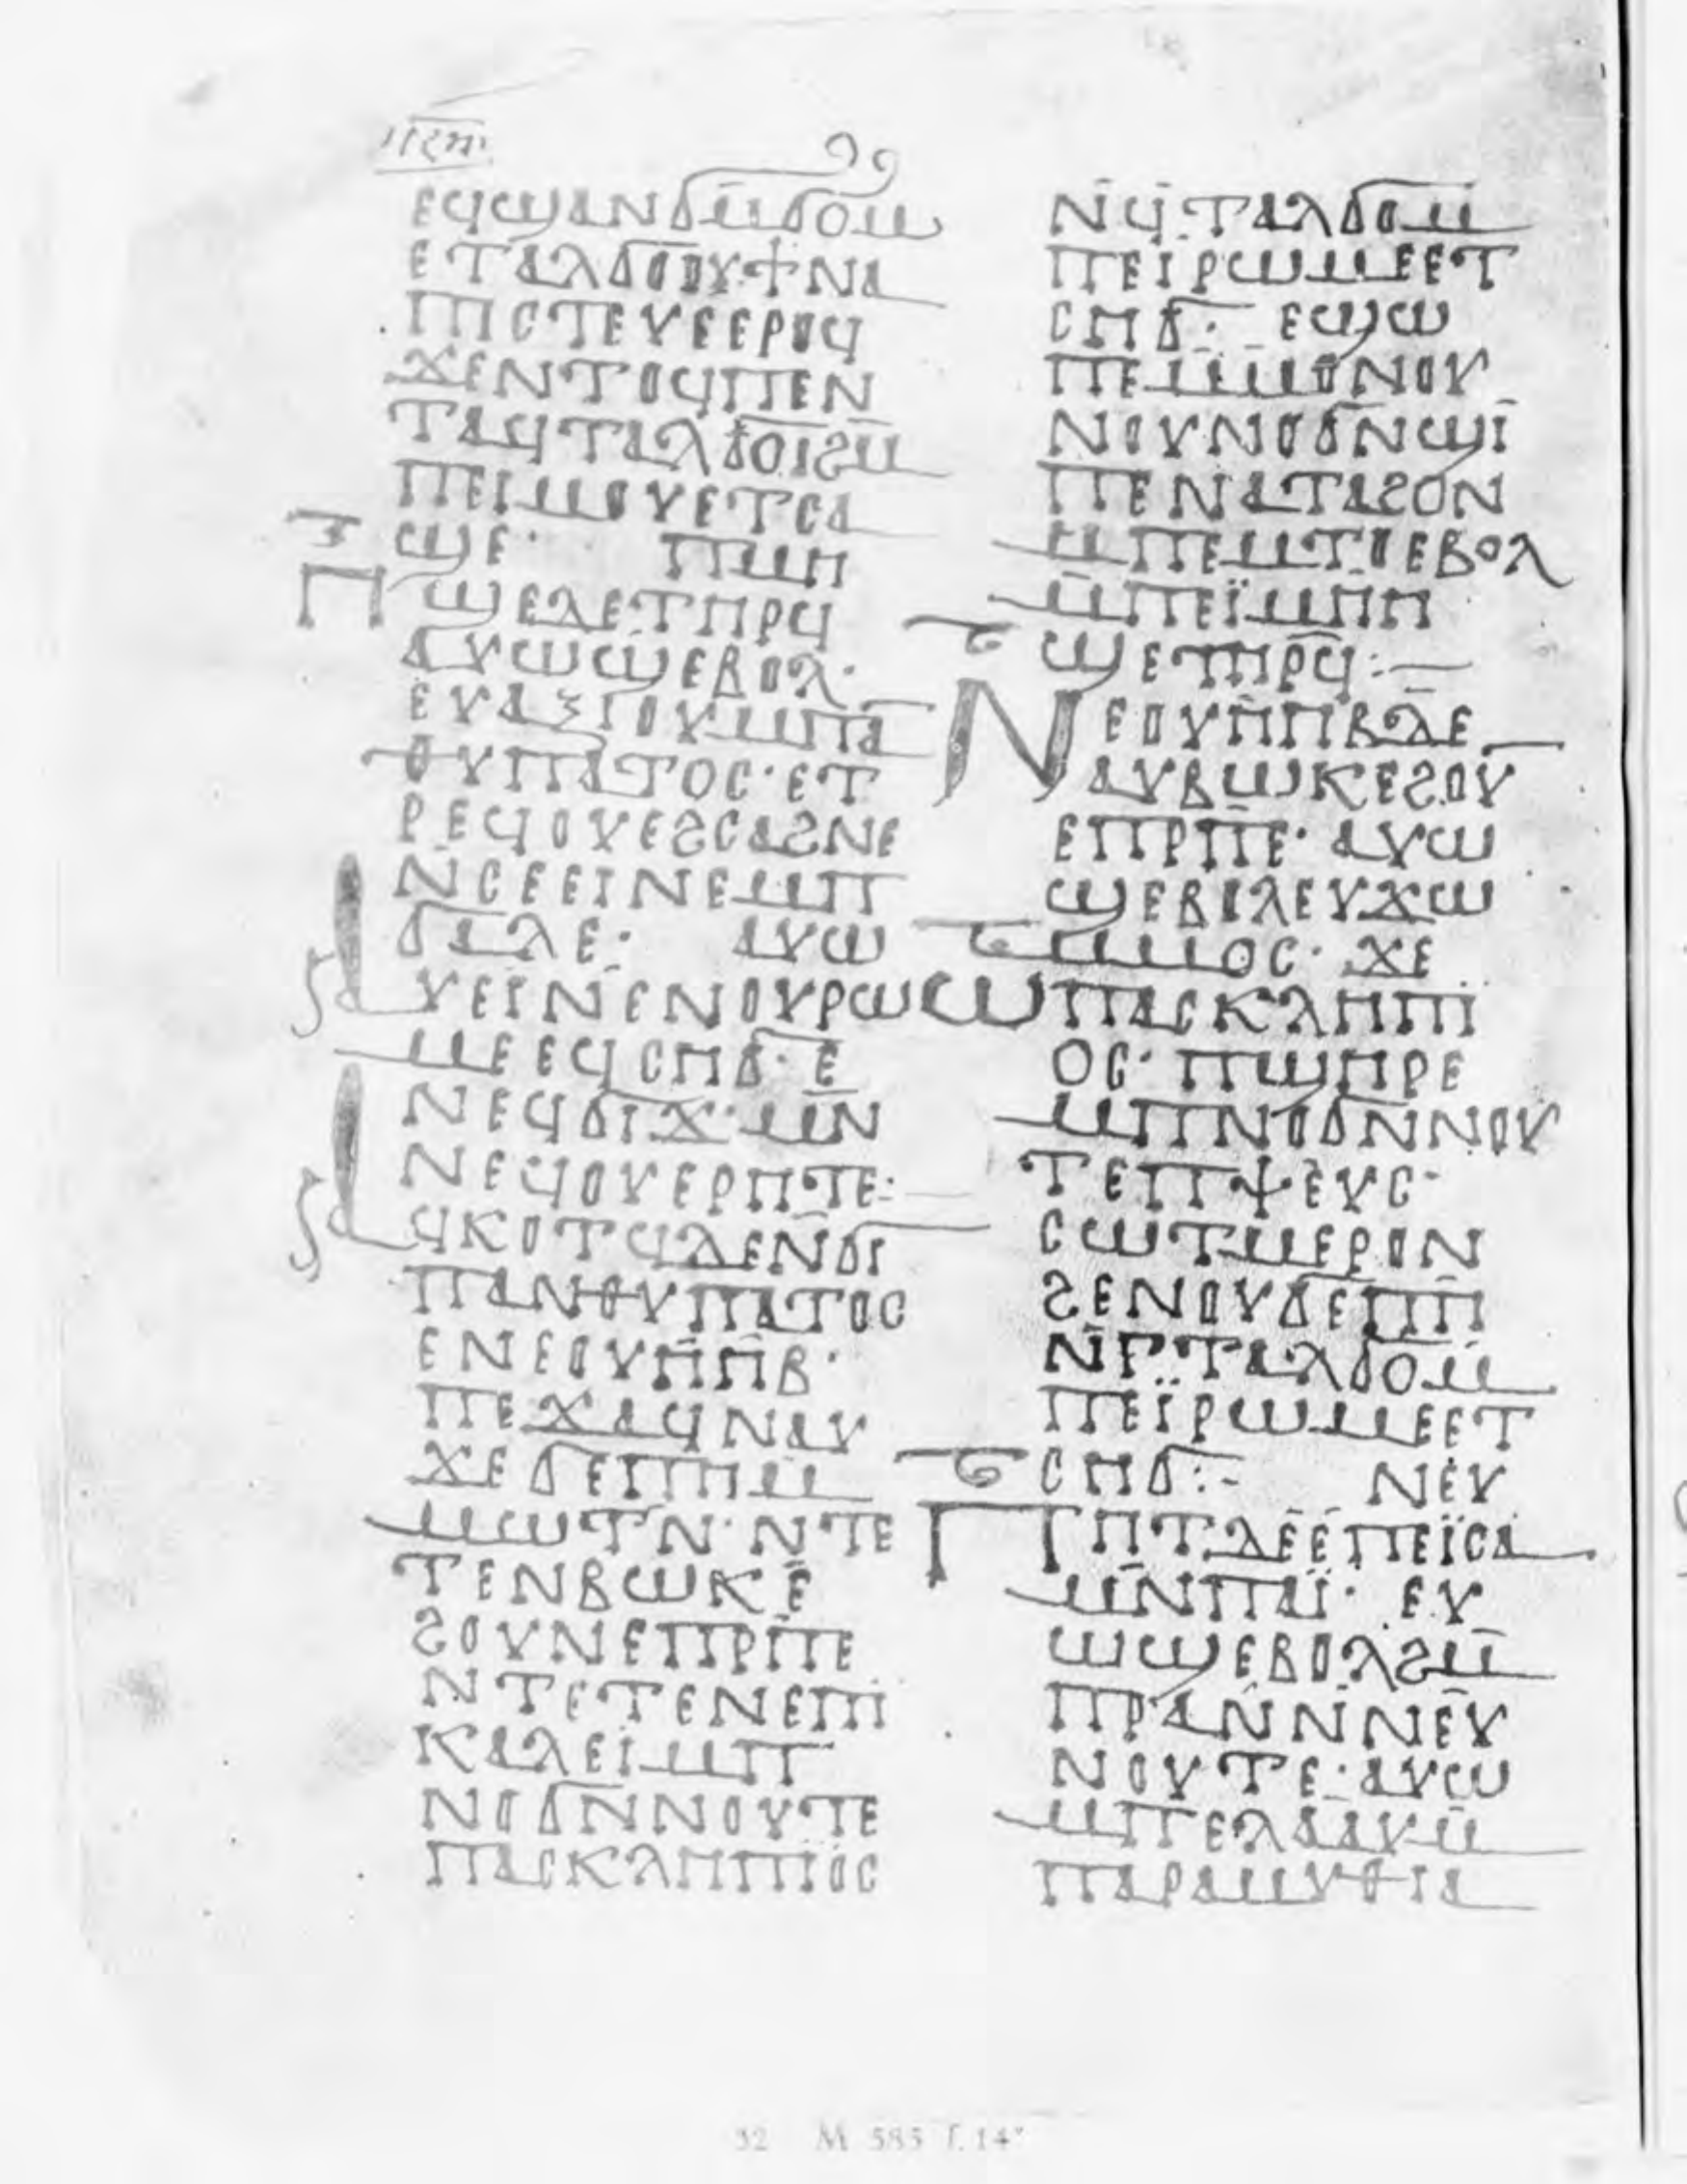 ⲉϥϣⲁⲛϭⲙ̄ϭⲟⲙ
ⲉⲧⲁⲗϭⲟⲟⲩ·ϯⲛⲁ
ⲡⲓⲥⲧⲉⲩⲉⲉⲣⲟϥ
ϫⲉⲛⲧⲟϥⲡⲉⲛ
ⲧⲁϥⲧⲁⲗϭⲟⲓϩⲙ̄
ⲡⲉⲓⲙⲟⲩⲉⲧⲥⲁ
ϣⲉ· ⲡⲙⲏ
ⲏϣⲉⲇⲉⲧⲏⲣϥ
ⲁⲩⲱϣⲉⲃⲟⲗ·
ⲉⲩⲁⲝⲓⲟⲩⲙⲡⲁ
ⲑⲩⲡⲁⲧⲟⲥ·ⲉⲧ
ⲣⲉϥⲟⲩⲉϩⲥⲁϩⲛⲉ
ⲛ̄ⲥⲉⲉⲓⲛⲉⲙⲡ
ϭⲁⲗⲉ· ⲁⲩⲱ
ⲁⲩⲉⲓⲛⲉⲛⲟⲩⲣⲱ
ⲙⲉⲉϥⲥⲏϭ·ⲉ̄
ⲛⲉϥϭⲓϫ·ⲙⲛ̄
ⲛⲉϥⲟⲩⲉⲣⲏⲧⲉ:
ⲁϥⲕⲟⲧϥⲇⲉⲛ̄ϭⲓ
ⲡⲁⲛⲑⲩⲡⲁⲧⲟⲥ
ⲉⲛⲉⲟⲩⲏⲏⲃ·
ⲡⲉϫⲁϥⲛⲁⲩ
ϫⲉϭⲉⲡⲏⲙ̄
ⲙⲱⲧⲛ·ⲛ̄ⲧⲉ
ⲧⲉⲛⲃⲱⲕⲉ̄
ϩⲟⲩⲛⲉⲡⲣⲡⲉ
ⲛⲧⲉⲧⲉⲛⲉⲡⲓ
ⲕⲁⲗⲉⲓⲙⲡ
ⲛⲟϭⲛ̄ⲛⲟⲩⲧⲉ
ⲡⲁⲥⲕⲗⲏⲡⲓⲟⲥ
ⲛϥ̄ⲧⲁⲗϭⲟⲙ̄
ⲡⲉⲓⲣⲱⲙⲉⲉⲧ
ⲥⲏϭ· ⲉϣⲱ
ⲡⲉⲙⲙⲟⲛⲟⲩ
ⲛⲟⲩⲛⲟϭⲛϣⲓ̄
ⲡⲉⲛⲁⲧⲁϩⲟⲛ
ⲙ̄ⲡⲉⲙⲧⲟⲉⲃⲟⲗ
ⲙ̄ⲡⲉⲓ̈ⲙⲏⲏ
ϣⲉⲧⲏⲣϥ:—
ⲛⲉⲟⲩⲏⲏⲃⲇⲉ
ⲁⲩⲃⲱⲕⲉϩⲟⲩ
ⲉⲡⲣⲡⲉ·ⲁⲩⲱ
ϣⲉⲃⲟⲗⲉⲩϫⲱ
ⲙⲙⲟⲥ·ϫⲉ
ⲱⲡⲁⲥⲕⲗⲏⲡⲓ
ⲟⲥ·ⲡϣⲏⲣⲉ
ⲙⲡⲛⲟϭⲛ̄ⲛⲟⲩ
ⲧⲉⲡⲍⲉⲩⲥ·
ⲥⲱⲧⲙⲉⲣⲟⲛ
ϩⲉⲛⲟⲩϭⲉⲡⲏ
ⲛ̄ⲅⲧⲁⲗϭⲟⲙ̄
ⲡⲉⲓ̈ⲣⲱⲙⲉⲉⲧ
ⲥⲏϭ:- ⲛⲉⲩ
ⲡⲏⲧⲇⲉⲉⲡⲉⲓ̈ⲥⲁ
ⲙⲛ̄ⲡⲁⲓ̈· ⲉⲩ
ⲱϣⲉⲃⲟⲗϩⲙ̄
ⲡⲣⲁⲛⲛ̄ⲛⲉⲩ
ⲛⲟⲩⲧⲉ·ⲁⲩⲱ
ⲙⲡⲉⲗⲁⲁⲩⲙ̄
ⲡⲁⲣⲁⲙⲩⲑⲓⲁ
32 M 585 f. 14ᵛ